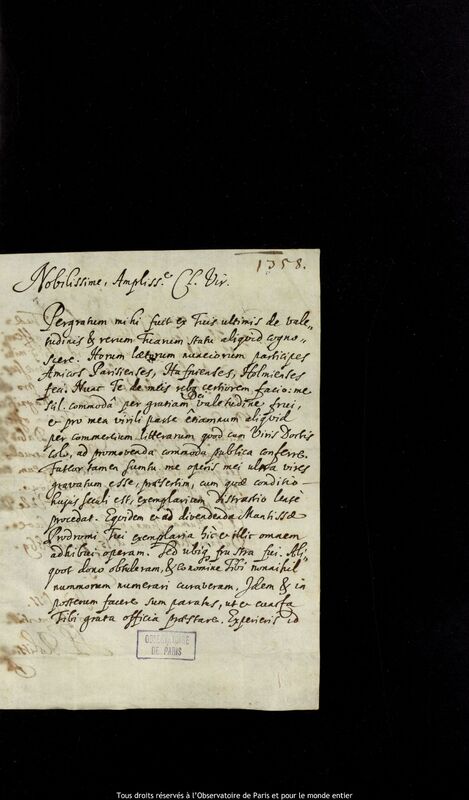 1358.
Nobilissime, Ampliss.e Cl. Vir.
Pergratum mihi fuit ex Tuis ultimis de vale„
tudinis & rerum Tuarum statu aliquid cogno„
scere. Horum lætorum nunciorum participes
Amicos Parisienses, Hafnienses, Holmienses
feci. Nunc Te de meis rebz certiorem facio: me
scil. commodâ per gratiam Dei valetudine frui,
& pro mea virili parte etiamnum aliquid
per commercium litterarum quod cum Viris Doctis
colo, ad promovenda commoda publica conferre.
Fateor tamen sumtu me operis mei ultra vires
gravatum esse, præsertim, cum quæ conditio
hujus seculi est, exemplarium distractio lente
procedat. Equidem & ad divendenda Mantissæ
Prodromi Tui exemplaria hic & illic omnem
adhibui operam. Sed ubiq frustra fui. Ali„
quot dono obtuleram, & eo nomine Tibi nonnihil
nummorum numerari curaveram. Idem & in
posterum facere sum paratus, ut & cuncta
Tibi grata officia præstare. Experieris id
OBSERVATOIRE
DE PARIS
Tous droits réservés à l'Observatoire de Paris et pour le monde entier